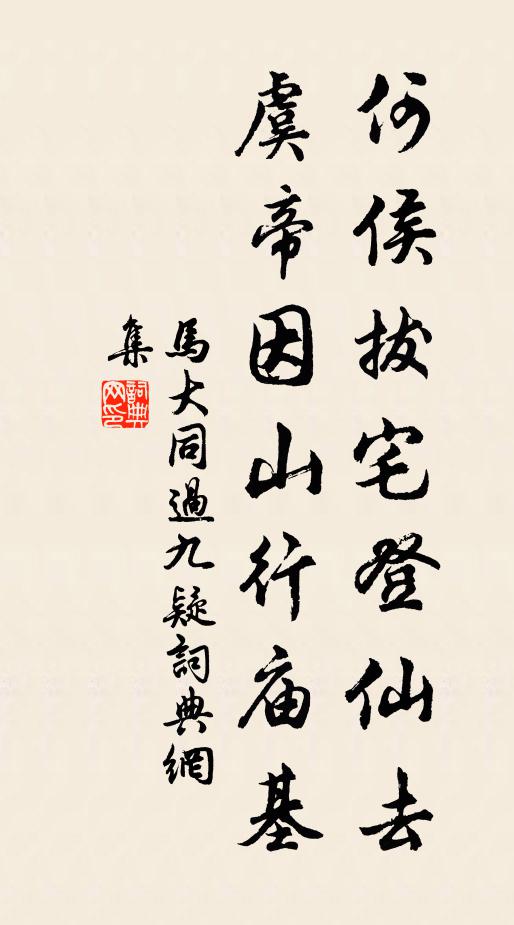 何侯拔宅登仙去
虞帝因山行庙基
馬大同過九疑詞典網
集
詞典网印